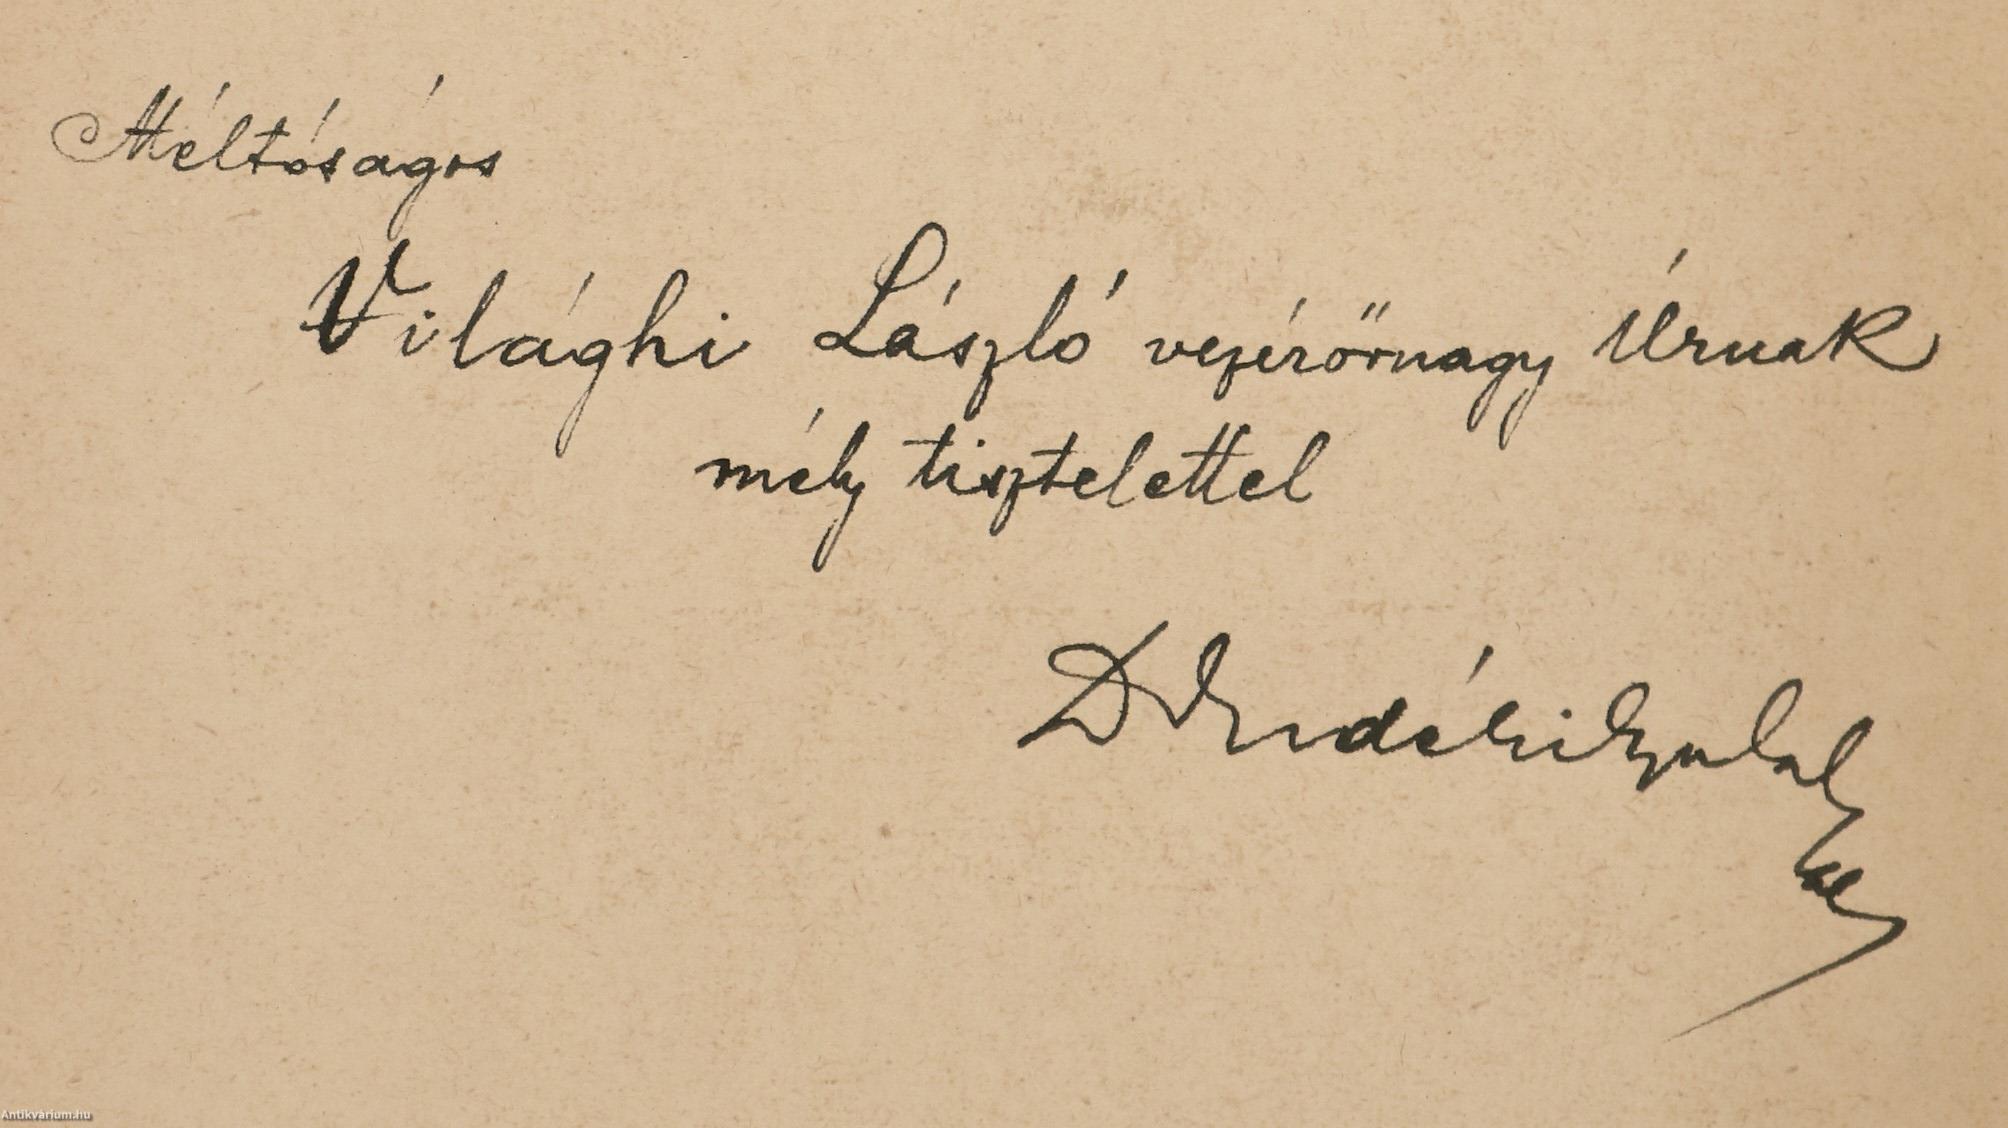 Méltóságos
Világhi László vezérőrnagy Úrnak
mély tisztelettel
Antikvarium.hu